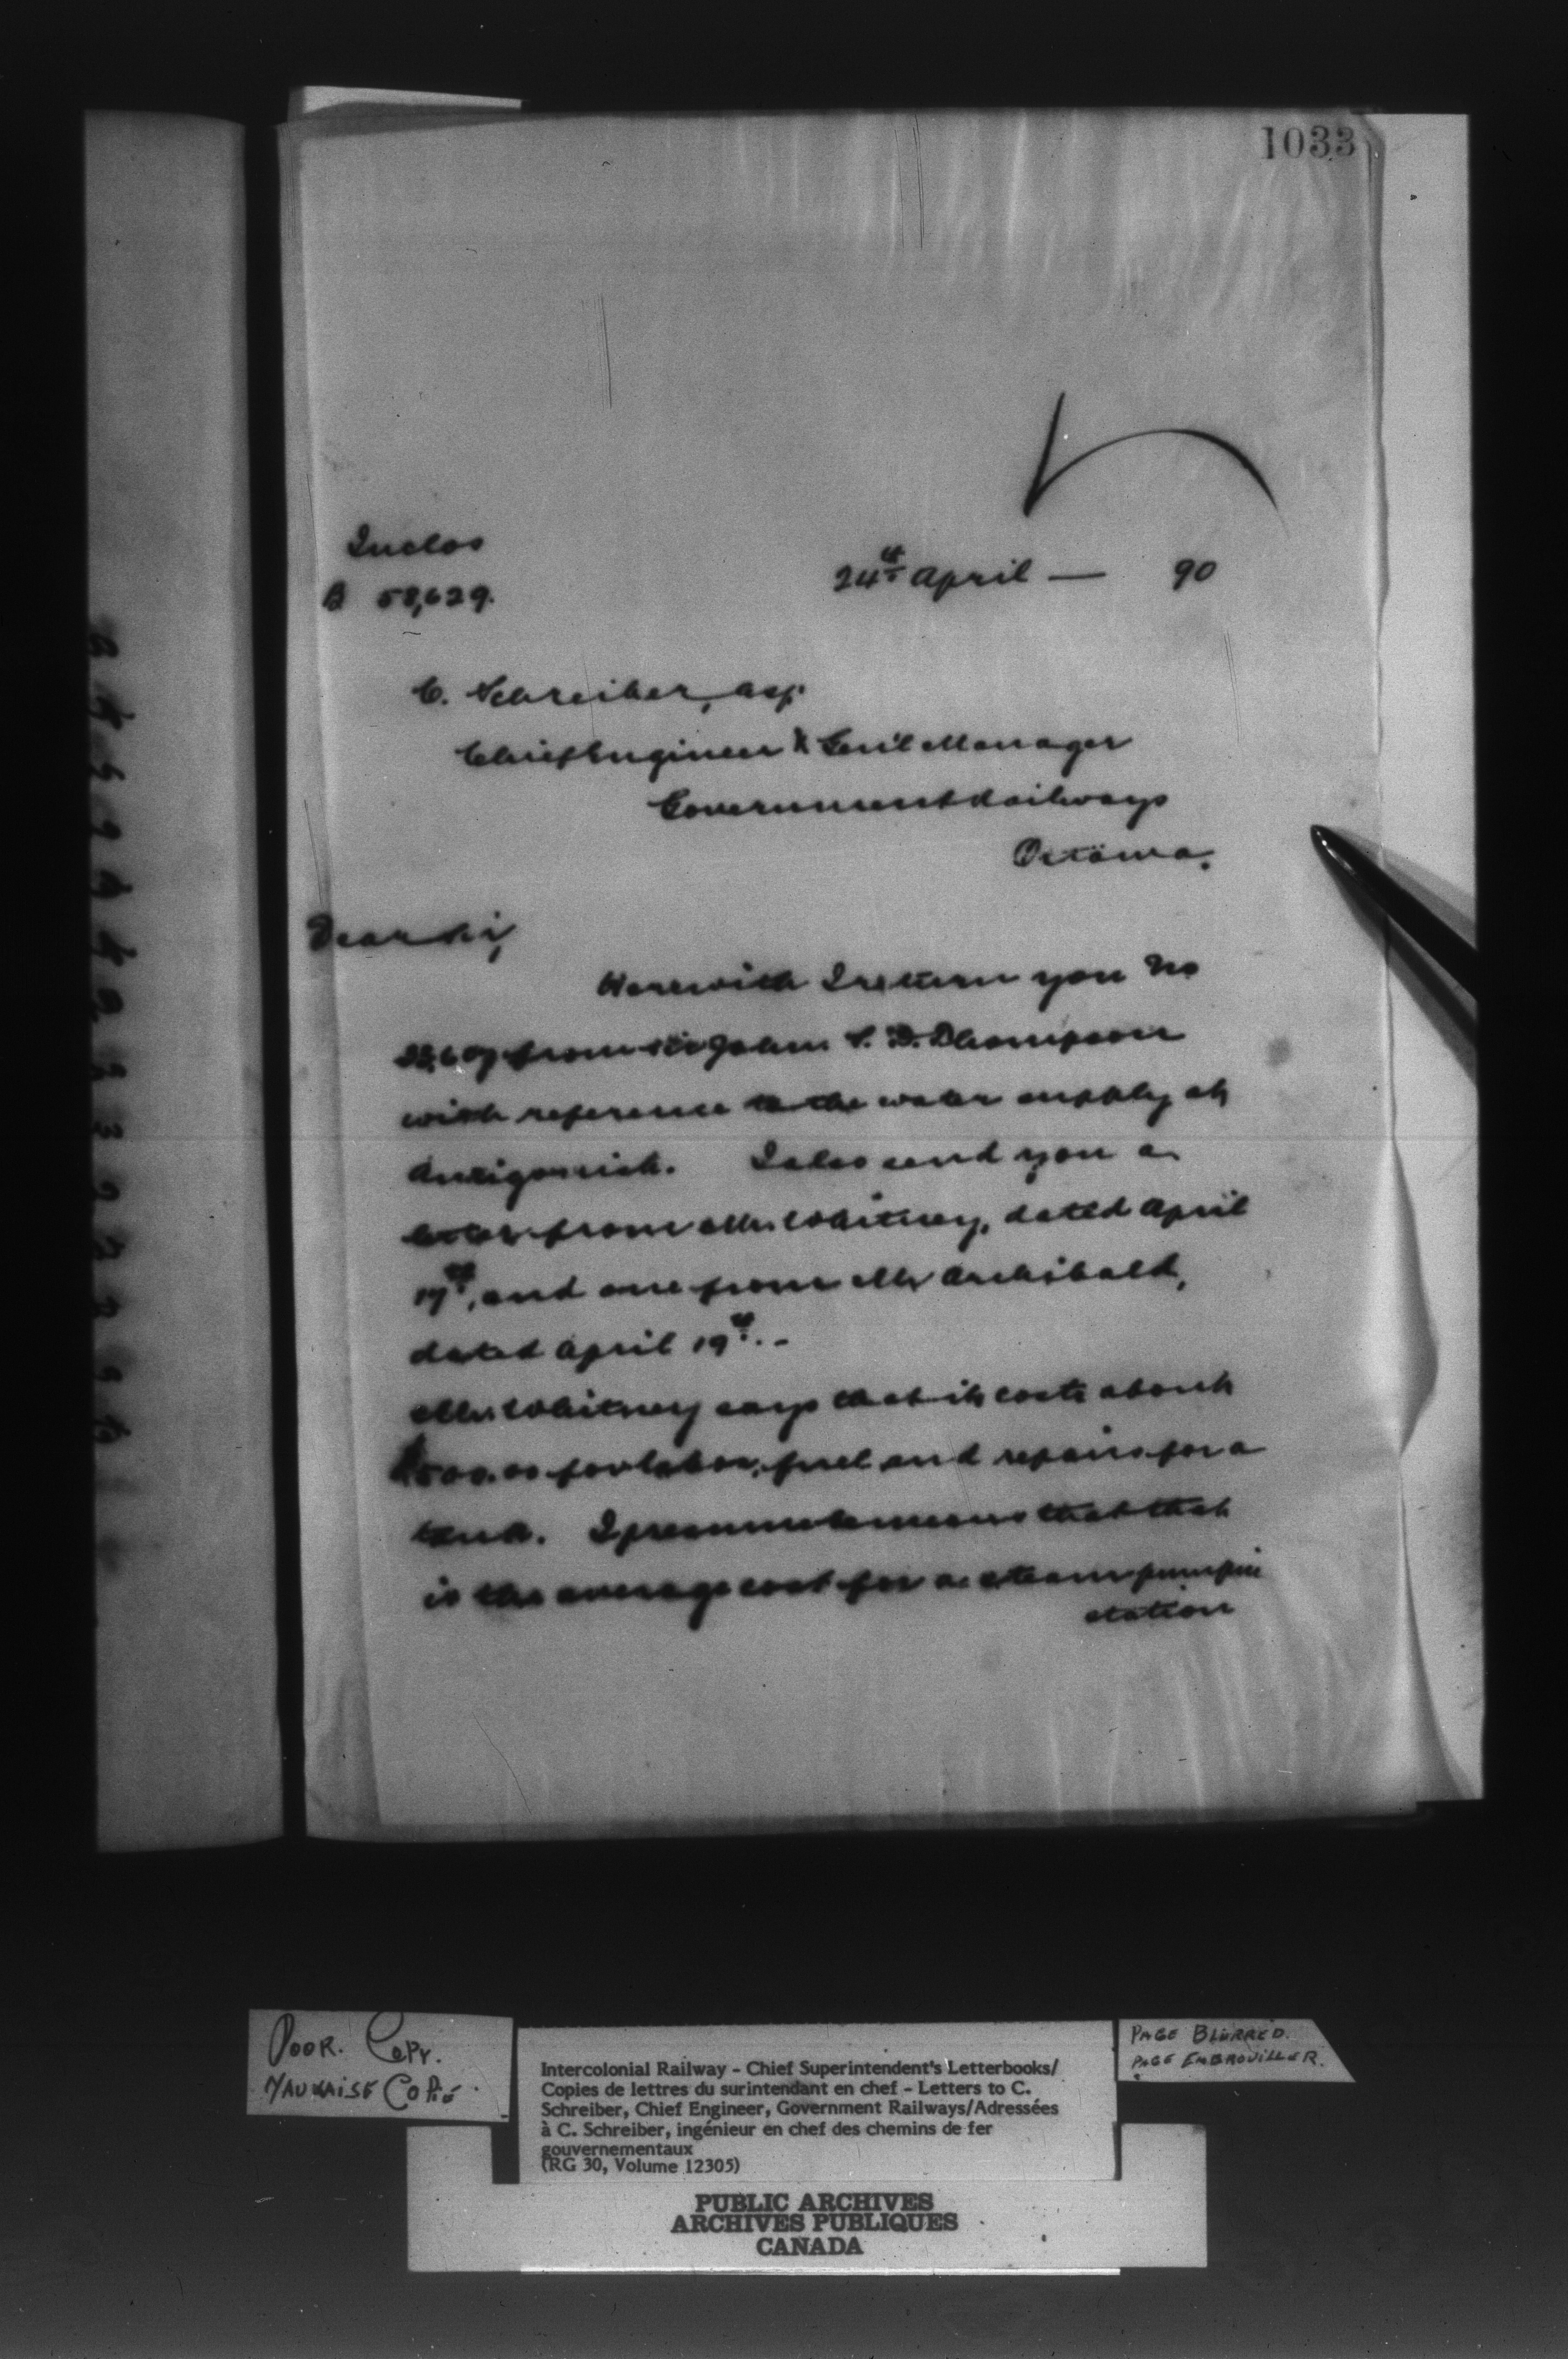 1033
Inclos
B 58,629.
24th April — 90
C. Schreiber, Esq.
Chief Engineer & Gen'l Manager
Government Railways
Ottawa.
Dear Sir,
Herewith I return you No
from Sir John S. D. Thompson
with reference to the water supply at
Antigonish. I also send you a
letter from Mr. Whitney, dated April
17th, and one from Mr Archibald,
dated April 19th. -
Mr. Whitney says that it costs about
$500.00 for labor, fuel and repairs for a
tank. I presume he means that that
is the average cost for a steam pumping
station
POOR. COPY.
MAUVAISE COPIE.
PAGE BLURRED.
PAGE EMBROUILLER.
Intercolonial Railway - Chief Superintendent's Letterbooks/
Copies de lettres du surintendant en chef - Letters to C.
Schreiber, Chief Engineer, Government Railways/Adressées
à C. Schreiber, ingénieur en chef des chemins de fer
gouvernementaux
(RG 30, Volume 12305)
PUBLIC ARCHIVES
ARCHIVES PUBLIQUES
CANADA